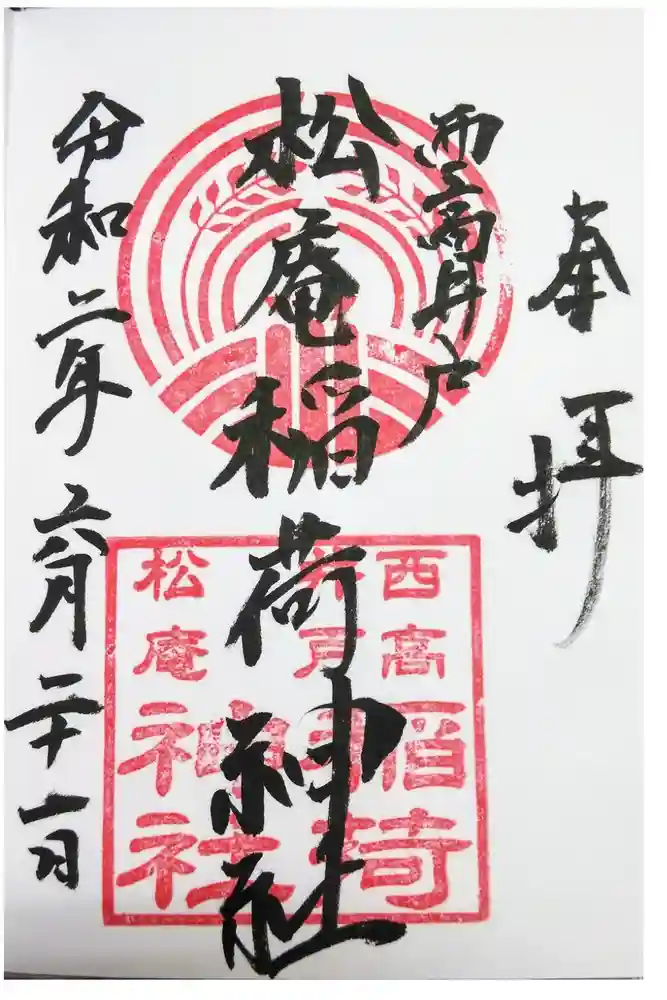 奉拝
西高井戸
松庵稲荷神社
令和二年六月二十一日
西高
井戸
松庵
稲荷
神社